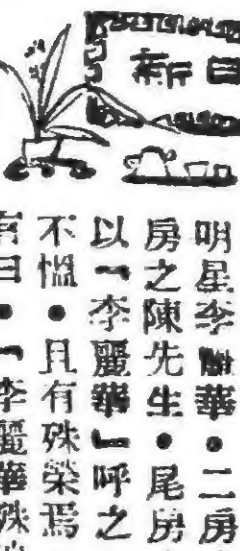 新日
明星李麗華●二房
房之陳先生●尾房
以「李麗華」呼之
不慍●且有殊榮焉
有曰●「李麗華殊